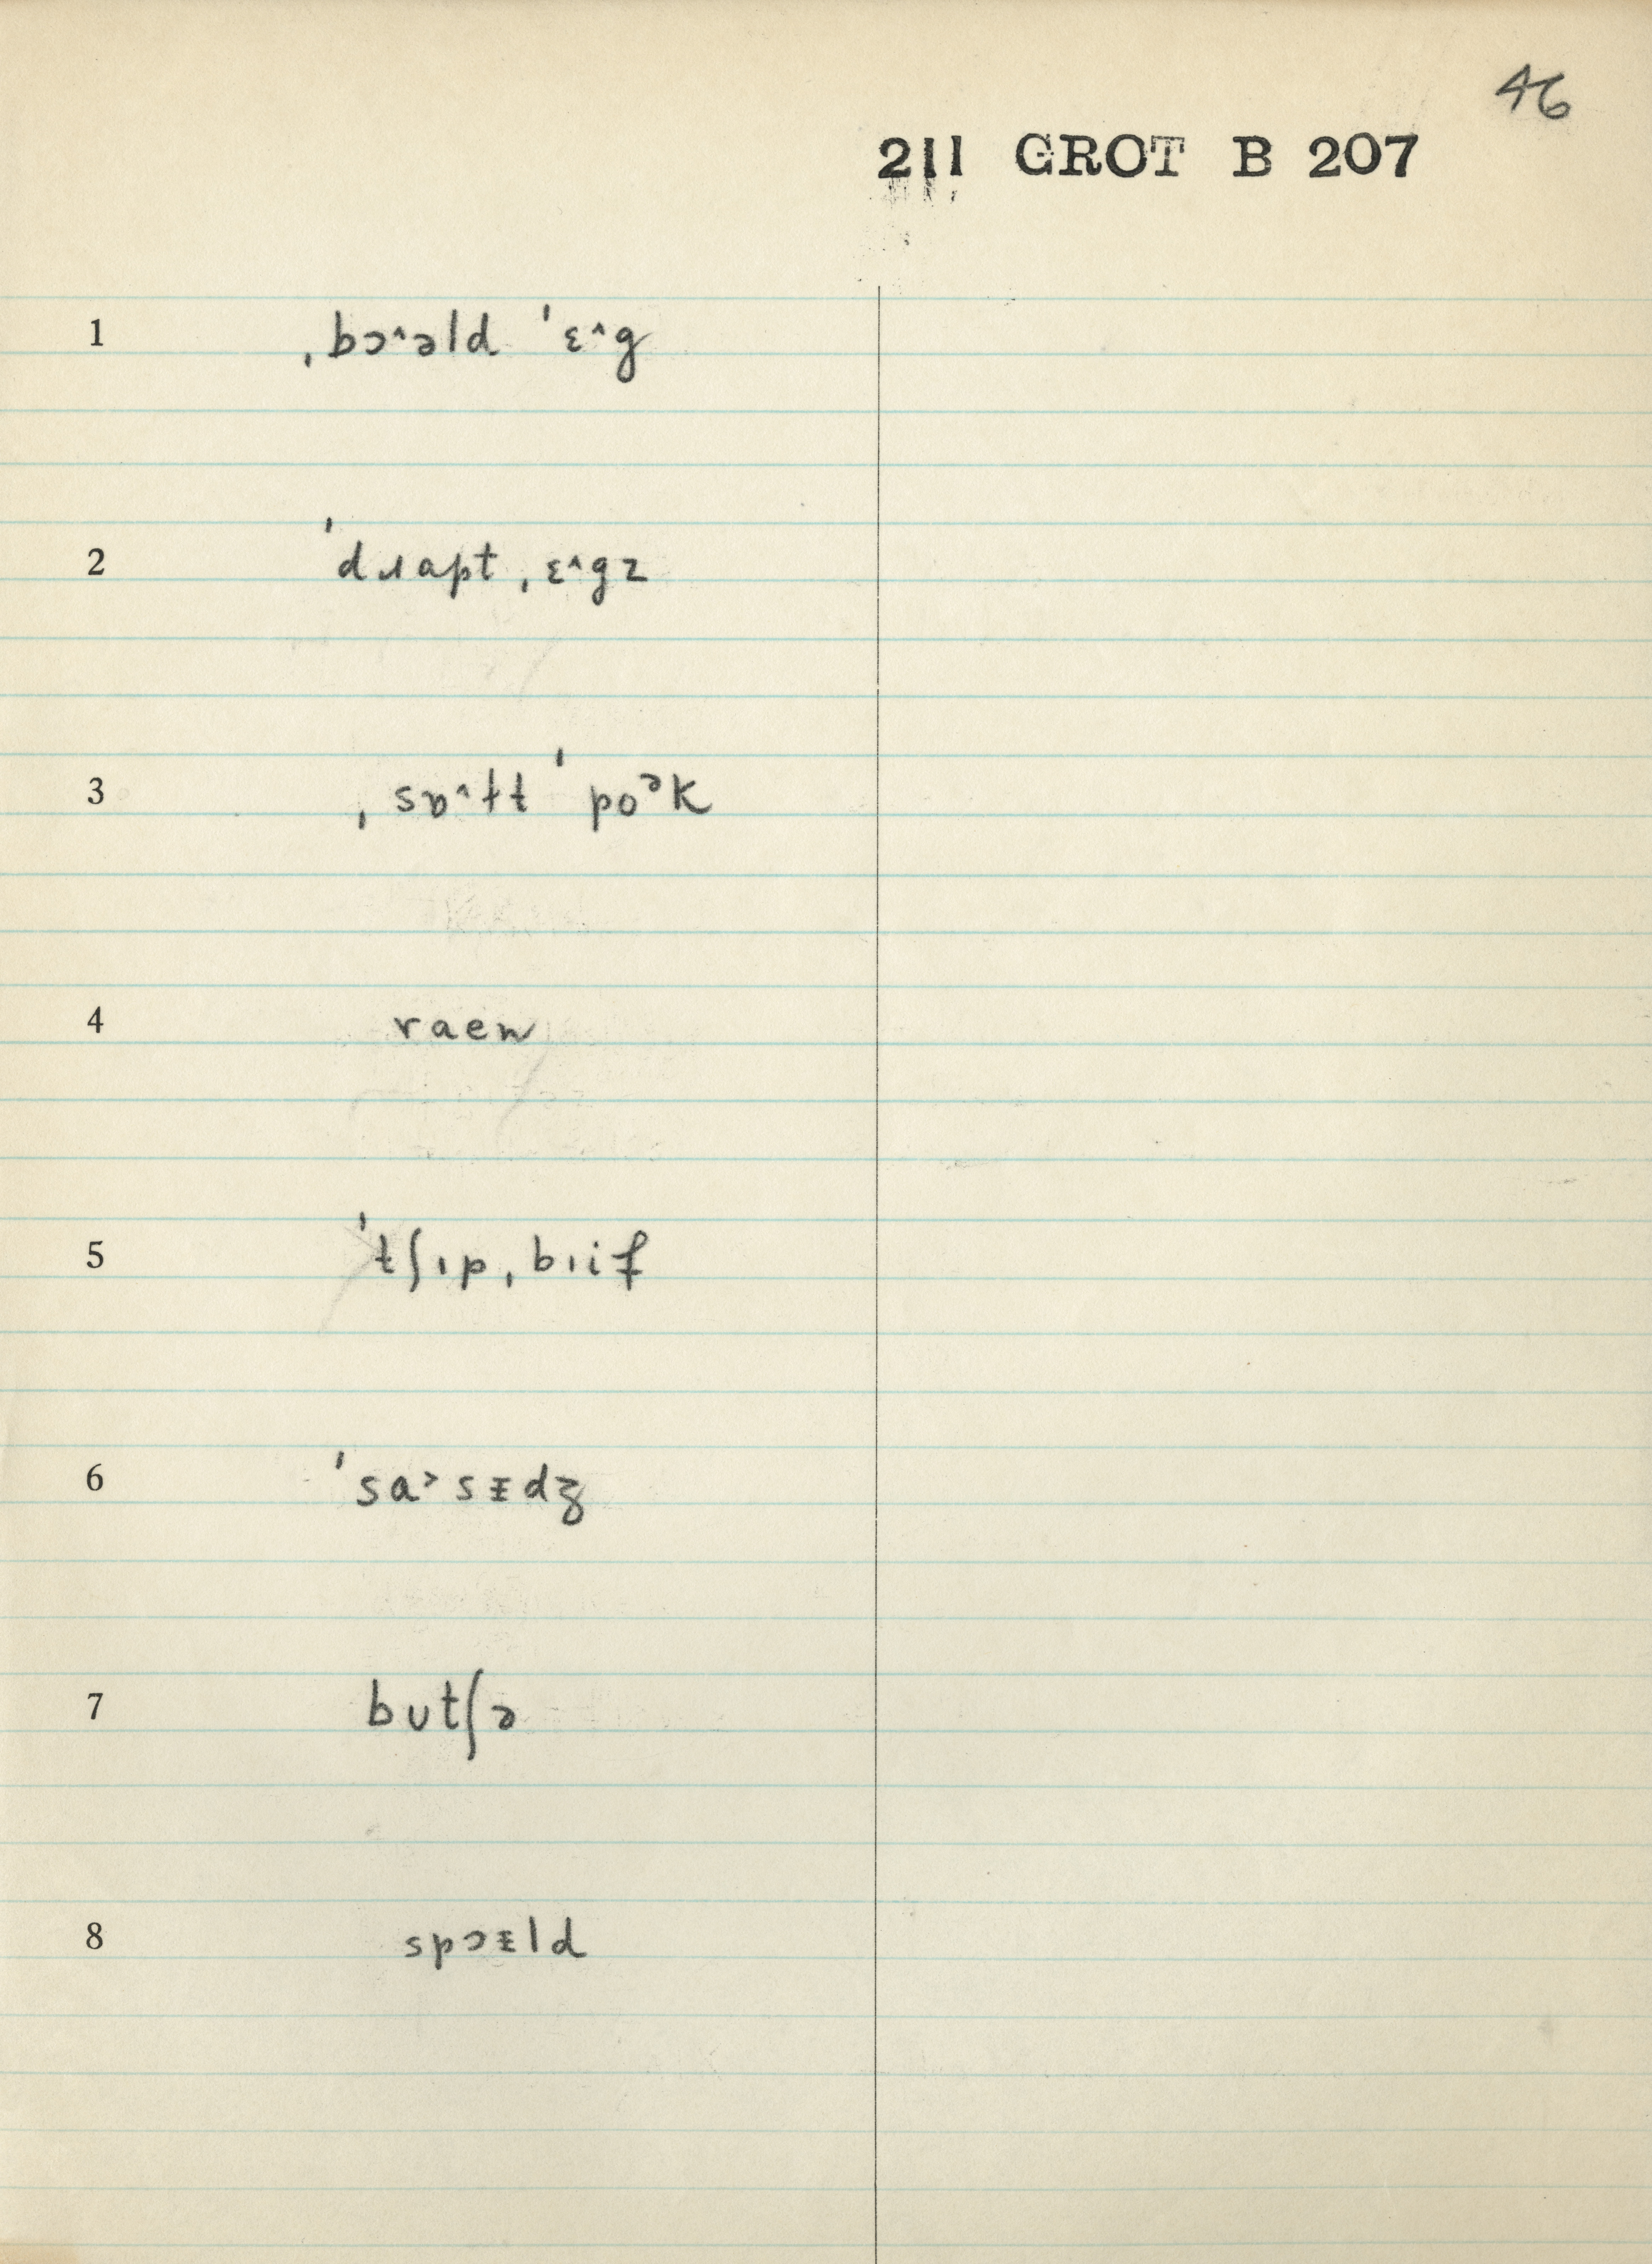 46
211 GROT B 207
1 ˌbɔ˄əld ˈɛ˄g
2 ˈdɹapt ˌɛ˄gz
3 ˌsɒ˄ɫt ˈpoᵊk
4 raen
5 ˈtʃɪp ˌbɪif
6 ˈsa˃sᵻdʒ
7 bʊtʃə
8 spɔᵻld